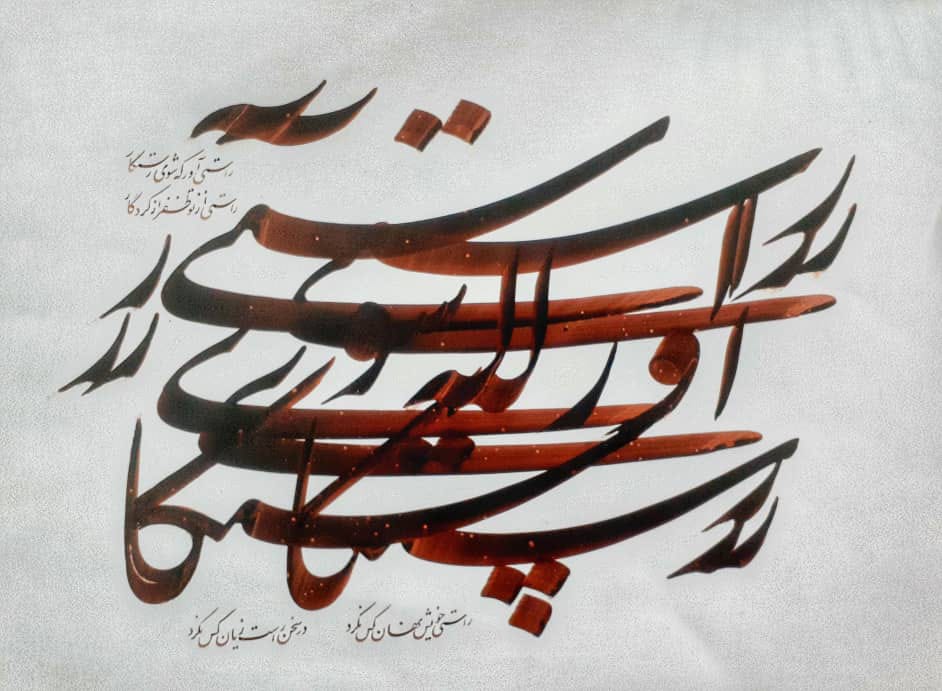 راستی آور که شوی رستگار
راستی از تو ظفر از کردگار
راستی آور که شوی رستگار
راستی خویش نهان کس نکرد
در سخن راست زیان کس نکرد